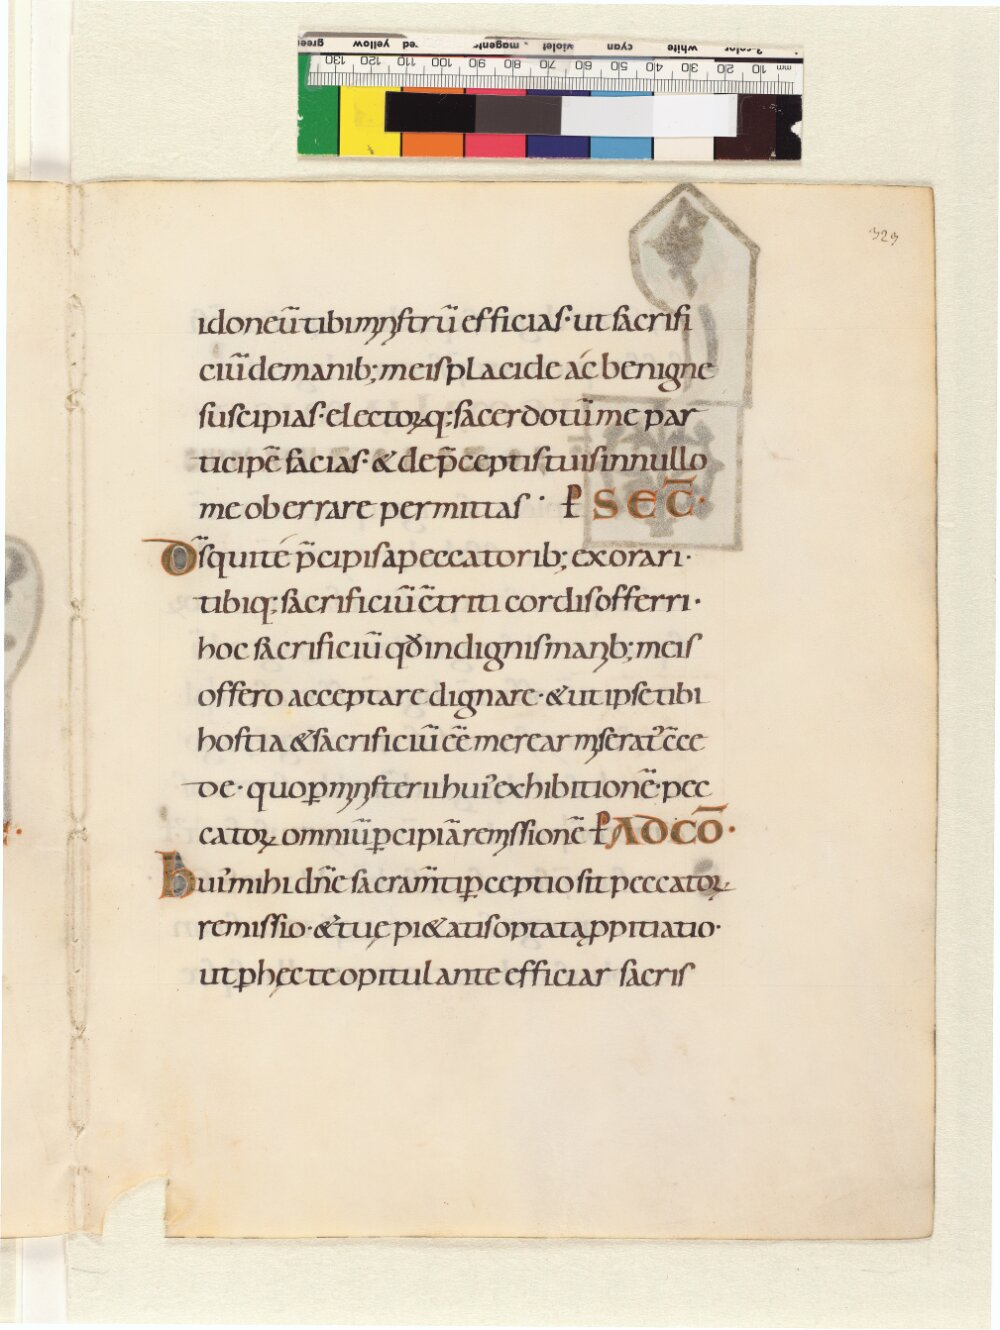 329
idoneū tibi mịnistrū efficias· ut sacrifi
ciū de manib; meis placide ac benigne
suscipias· electorꝝq; sacerdotū me par
ticipē facias· & de p̄ceptis tuis in nullo
me oberrare permittas· ⁊ SEC̄·
Ds̄ qui te p̄cipis a peccatorib; exorari·
tibiq; sacrificiū c̄triti cordis offerri·
hoc sacrificiū qđ indignis manib; meis
offero acceptare dignare· & ut ipse tibi
hostia & sacrificiū eē merear miserat᷒ c̄ce
de· quo ꝑ ministerii hui᷒ exhibitionē· pec
catoꝝ omniū ꝑcipiā remissionē ⁊ AD CŌ·
Hui᷒ mihi dn̄e sacram̄ti ꝑceptio sit peccatoꝝ
remissio· & tuę pi&atis optata ꝓpitiatio·
ut ꝑ hęc te opitulante efficiar sacris